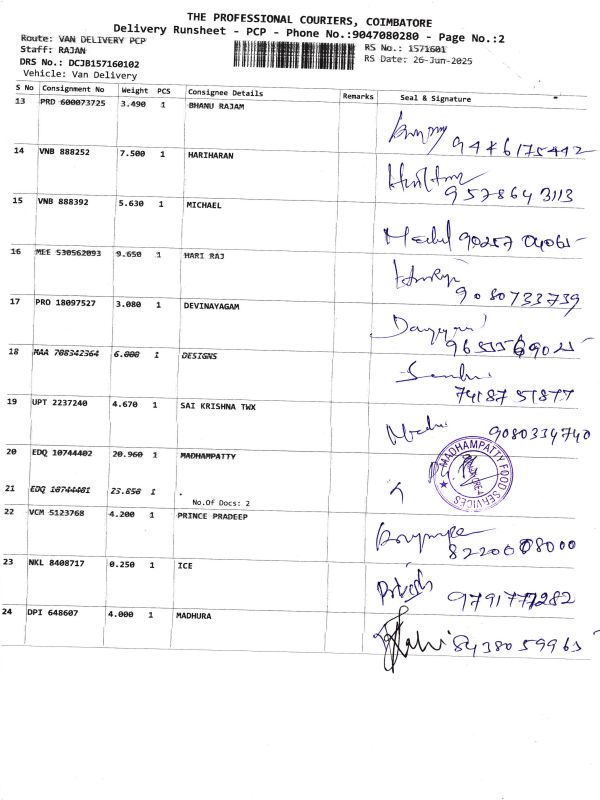 THE PROFESSIONAL COURIERS, COIMBATORE
Delivery Runsheet - PCP - Phone No.:9047080280 - Page No.:2
Route: VAN DELIVERY PCP
RS No.: 1571601
Staff: RAJAN
RS Date: 26-Jun-2025
DRS No.: DCJB157160102
Vehicle: Van Delivery
S No Consignment No Weight PCS Consignee Details Remarks Seal & Signature
13 PRD 600073725 3.490 1 BHANU RAJAM
9446175442
14 VNB 888252 7.500 1 HARIHARAN
9578643113
15 VNB 888392 5.630 1 MICHAEL
16 MEE 530562093 9.650 1 HARI RAJ
9080733739
17 PRO 18097527 3.080 1 DEVINAYAGAM
18 MAA 708342364 6.000 1 DESIGNS
74187 51877
19 UPT 2237240 4.670 1 SAI KRISHNA TWX
9080334740
20 EDQ 10744402 20.960 1 MADHAMPATTY
MADHAMPATTY FOOD SERVICES
21 EDQ 10744401 23.850 1 .
No.Of Docs: 2
22 VCM 5123768 4.200 1 PRINCE PRADEEP
8220008000
23 NKL 8408717 0.250 1 ICE
9791777282
24 DPI 648607 4.000 1 MADHURA
8438059965